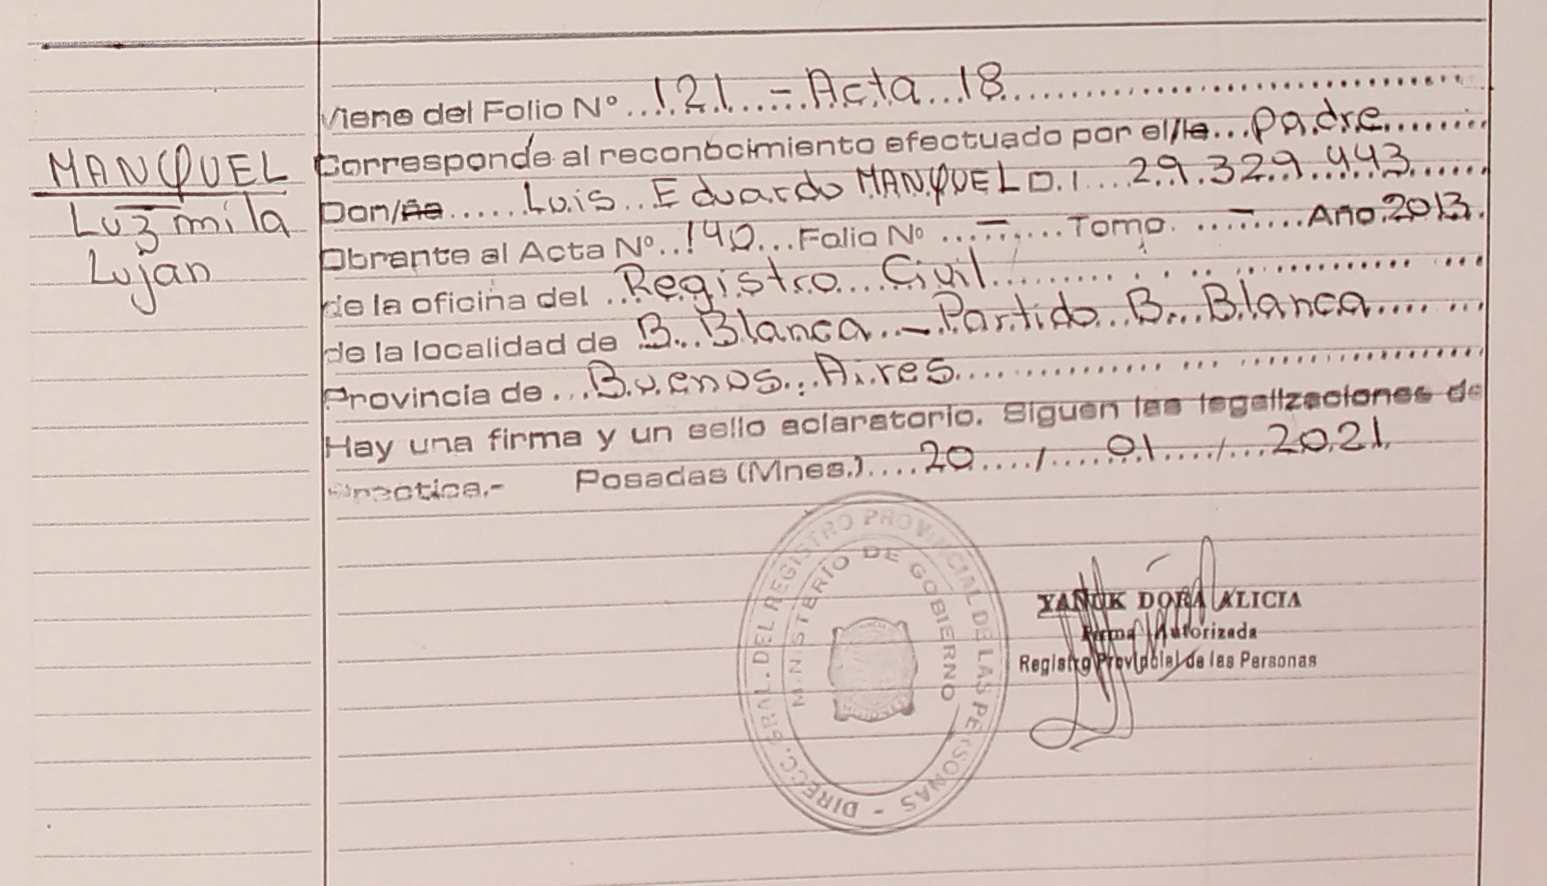 MANQUEL
Luzmila
Lujan
Viene del Folio Nº 121 - Acta 18
Corresponde al reconocimiento efectuado por el/la padre
Don/ña Luis Eduardo MANQUEL D.I 29.329.443
Obrante al Acta Nº 190 Folio Nº - Tomo - Año 2013
de la oficina del Registro Civil
de la localidad de B. Blanca - Partido B. Blanca
Provincia de Buenos Aires
Hay una firma y un sello aclaratorio. Siguen las legalizaciones de
Práctica.- Posadas (Mnes.) 20 / 01 / 2021
DIRECC. GRAL. DEL REGISTRO PROVINCIAL DE LAS PERSONAS -
MINISTERIO DE GOBIERNO
YAÑUK DORA ALICIA
Firma Autorizada
Registro Provincial de las Personas